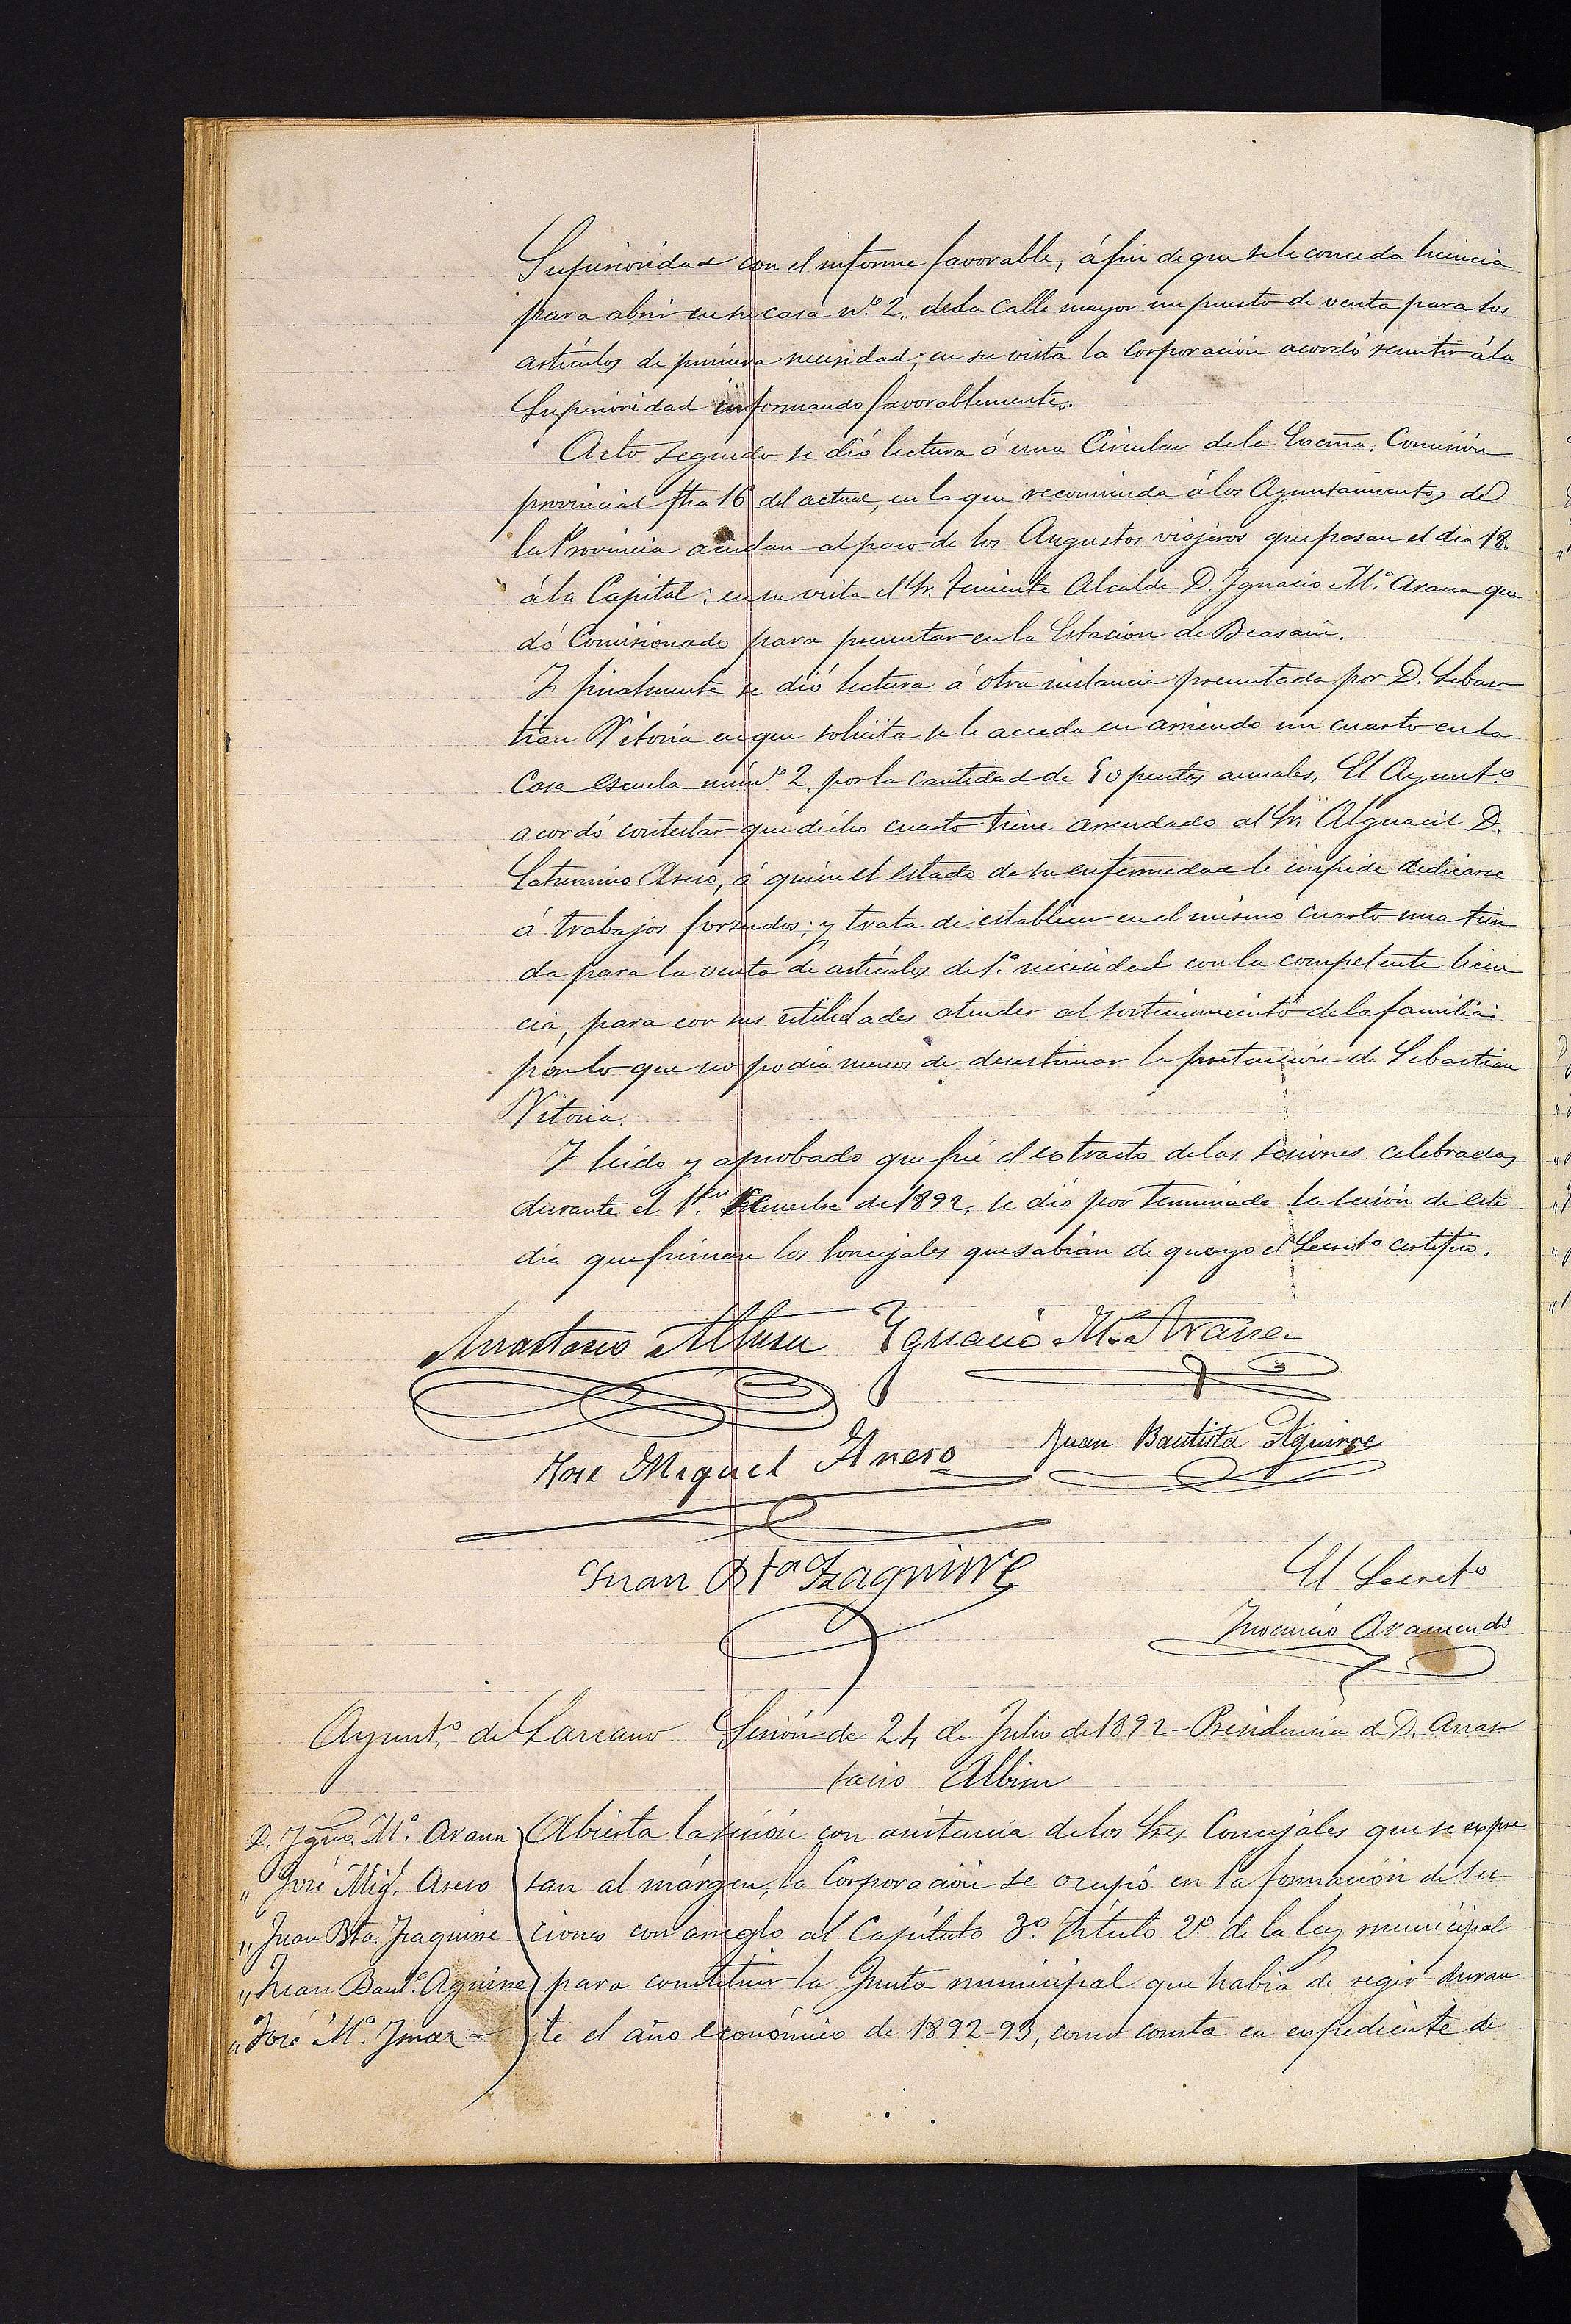 Superioridad con el informe favorable, á fin de que se le conceda licencia
para abrir en su casa n.º 2. de la calle mayor un puesto de venta para los
artículos de primera necesidad; en su vista la Corporación acordó remitir á la
Superioridad informando favorablemente.
Acto seguido se dió lectura á una Circular de la Excma. Comisión
provincial fha 16 del actual, en la que recomienda á los Ayuntamientos de
la Provincia acudan al paso de los Augustos viajeros que pasan el dia 18.
á la Capital: en su vista el Sr. Teniente Alcalde D. Ignacio M.ª Arana que
dó Comisionado para presentar en la Estación de Beasain.
Y finalmente se dió lectura á otra instancia presentada por D. Sebas
tian Vitoria en que solicita se le acceda en arriendo un cuarto en la
Casa escuela núm.º 2, por la cantidad de 50 pesetas anuales. El Ayunt.º
acordó contestar que dicho cuarto tiene arrendado al Sr. Alguacil D.
Saturnino Aseso, á quien el estado de su enfermedad le impide dedicarse
á trabajos forzudos; y trata de establecer en el mismo cuarto una tien
da para la venta de artículos de 1.ª necesidad con la competente licen
cia, para con sus utilidades atender al sostenimiento de la familia:
por lo que no podia menos de desestimar la pretención de Sebastian
Vitoria.
Y leido y aprobado que fué el extracto de las sesiones celebradas
durante el 1.er Semestre de 1892, se dió por terminada la sesión de este
dia que firman los Concejales que sabian de que yo el Secret.º certifico.
Anastasio Albisu Ygnacio M.ª Arana
José Miguel Aseso Juan Bautista Aguirre
Juan Bta Izaguirre
El Secret.º
Inocencio Aramendi
Ayunt.º de Lazcano Sesión de 24 de Julio de 1892 - Presidencia de D. Anas
tacio Albisu
D. Ygnº. M.ª Arana
" José Mig.l Aseso
" Juan Bta. Izaguirre
" Juan Baut.ª Aguirre
" José M.ª Imaz
Abierta la sesión con asistencia de los Sres Concejales que se expre
san al márgen, la Corporación se ocupó en la formación de Sec
ciones con arreglo al Capítulo 3.º Título 2.º de la ley municipal
para constituir la Junta municipal que habia de regir duran
te el año económico de 1892-93, como consta en expediente de